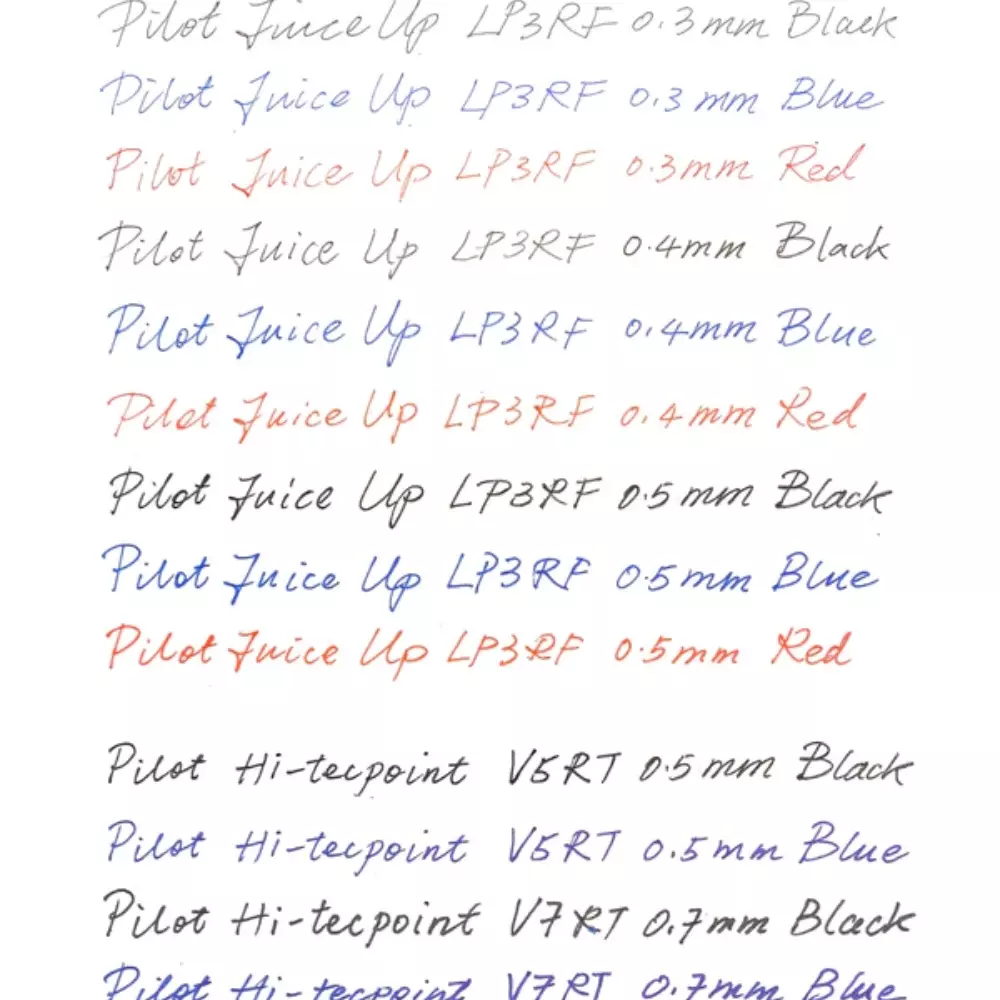 Pilot Juice Up LP3RF 0.3mm Black
Pilot Juice Up LP3RF 0.3mm Blue
Pilot Juice Up LP3RF 0.3mm Red
Pilot Juice Up LP3RF 0.4mm Black
Pilot Juice Up LP3RF 0.4mm Blue
Pilot Juice Up LP3RF 0.4mm Red
Pilot Juice Up LP3RF 0.5mm Black
Pilot Juice Up LP3RF 0.5mm Blue
Pilot Juice Up LP3RF 0.5mm Red
Pilot Hi-tecpoint V5RT 0.5mm Black
Pilot Hi-tecpoint V5RT 0.5mm Blue
Pilot Hi-tecpoint V7RT 0.7mm Black
Pilot Hi-tecpoint V7RT 0.7mm Blue